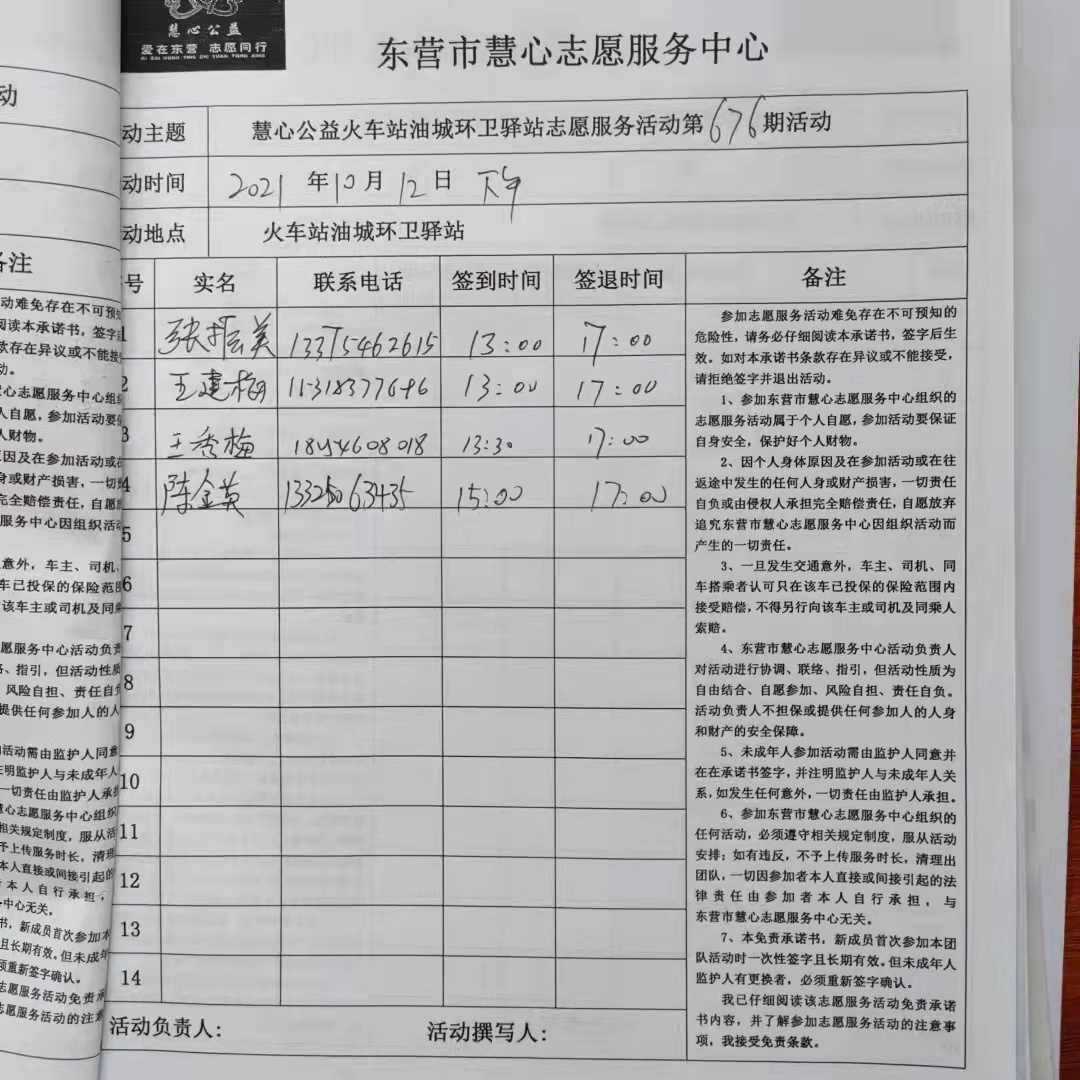 慧心公益
爱在东营 志愿同行
AI ZAI DONG YING ZHI YUAN TONG XING
东营市慧心志愿服务中心
动主题 慧心公益火车站油城环卫驿站志愿服务活动第676期活动
动时间 2021年10月12日 下午
动地点 火车站油城环卫驿站
号 实名 联系电话 签到时间 签退时间 备注
1 张振美 13375462615 13:00 17:00
2 王建梅 13:00 17:00
3 王秀梅 13:30 17:00
4 陈金英 15:00 17:00
5
6
7
8
9
10
11
12
13
14
参加志愿服务活动难免存在不可预知的
危险性，请务必仔细阅读本承诺书，签字后生
效。如对本承诺书条款存在异议或不能接受，
请拒绝签字并退出活动。
1、参加东营市慧心志愿服务中心组织的
志愿服务活动属于个人自愿，参加活动要保证
自身安全，保护好个人财物。
2、因个人身体原因及在参加活动或在往
返途中发生的任何人身或财产损害，一切责任
自负或由侵权人承担完全赔偿责任，自愿放弃
追究东营市慧心志愿服务中心因组织活动而
产生的一切责任。
3、一旦发生交通意外，车主、司机、同
车搭乘者认可只在该车已投保的保险范围内
接受赔偿，不得另行向该车主或司机及同乘人
索赔。
4、东营市慧心志愿服务中心活动负责人
对活动进行协调、联络、指引，但活动性质为
自由结合、自愿参加、风险自担、责任自负。
活动负责人不担保或提供任何参加人的人身
和财产的安全保障。
5、未成年人参加活动需由监护人同意并
在在承诺书签字，并注明监护人与未成年人关
系，如发生任何意外，一切责任由监护人承担。
6、参加东营市慧心志愿服务中心组织的
任何活动，必须遵守相关规定制度，服从活动
安排；如有违反，不予上传服务时长，清理出
团队，一切因参加者本人直接或间接引起的法
律责任由参加者本人自行承担，与
东营市慧心志愿服务中心无关。
7、本免责承诺书，新成员首次参加本团
队活动时一次性签字且长期有效。但未成年人
监护人有更换者，必须重新签字确认。
我已仔细阅读该志愿服务活动免责承诺
书内容，并了解参加志愿服务活动的注意事
项，我接受免责条款。
活动负责人： 活动撰写人：